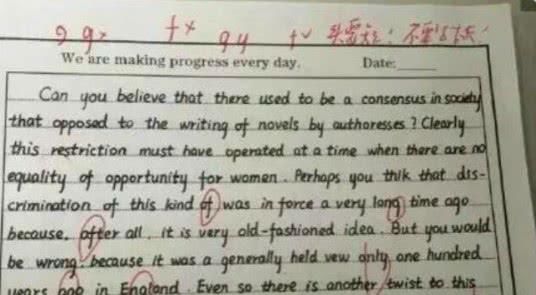 9 9x fx 94 f✓
We are making progress every day. Date:
Can you believe that there used to be a consensus in society
that opposed to the writing of novels by authoresses? Clearly
this restriction must have operated at a time when there are no
equality of opportunity for women. Perhaps you thik that dis-
crimination of this kind of was in force a very long time ago
because, after all, it is very old-fashioned idea. But you would
be wrong, because it was a generally held vew only one hundred
years ago in England. Even so there is another twist to this